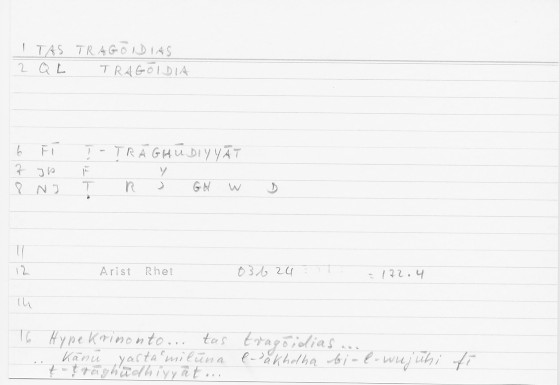 1 TAS TRAGŌIDIAS
2 QL TRAGŌIDIA
6 FĪ Ṭ-ṬRĀGHŪDIYYĀT
7 JW F Y
8 NJ Ṭ R ʾ GH W D
11
12 Arist Rhet 03.b 24 = 172.4
14
16 Hypekrinonto... tas tragōidias...
.. Kānū yastaʿmilūna l-ʾakhdha bi-l-wujūhi fī
ṭ-ṭrāghūdhiyyāt...